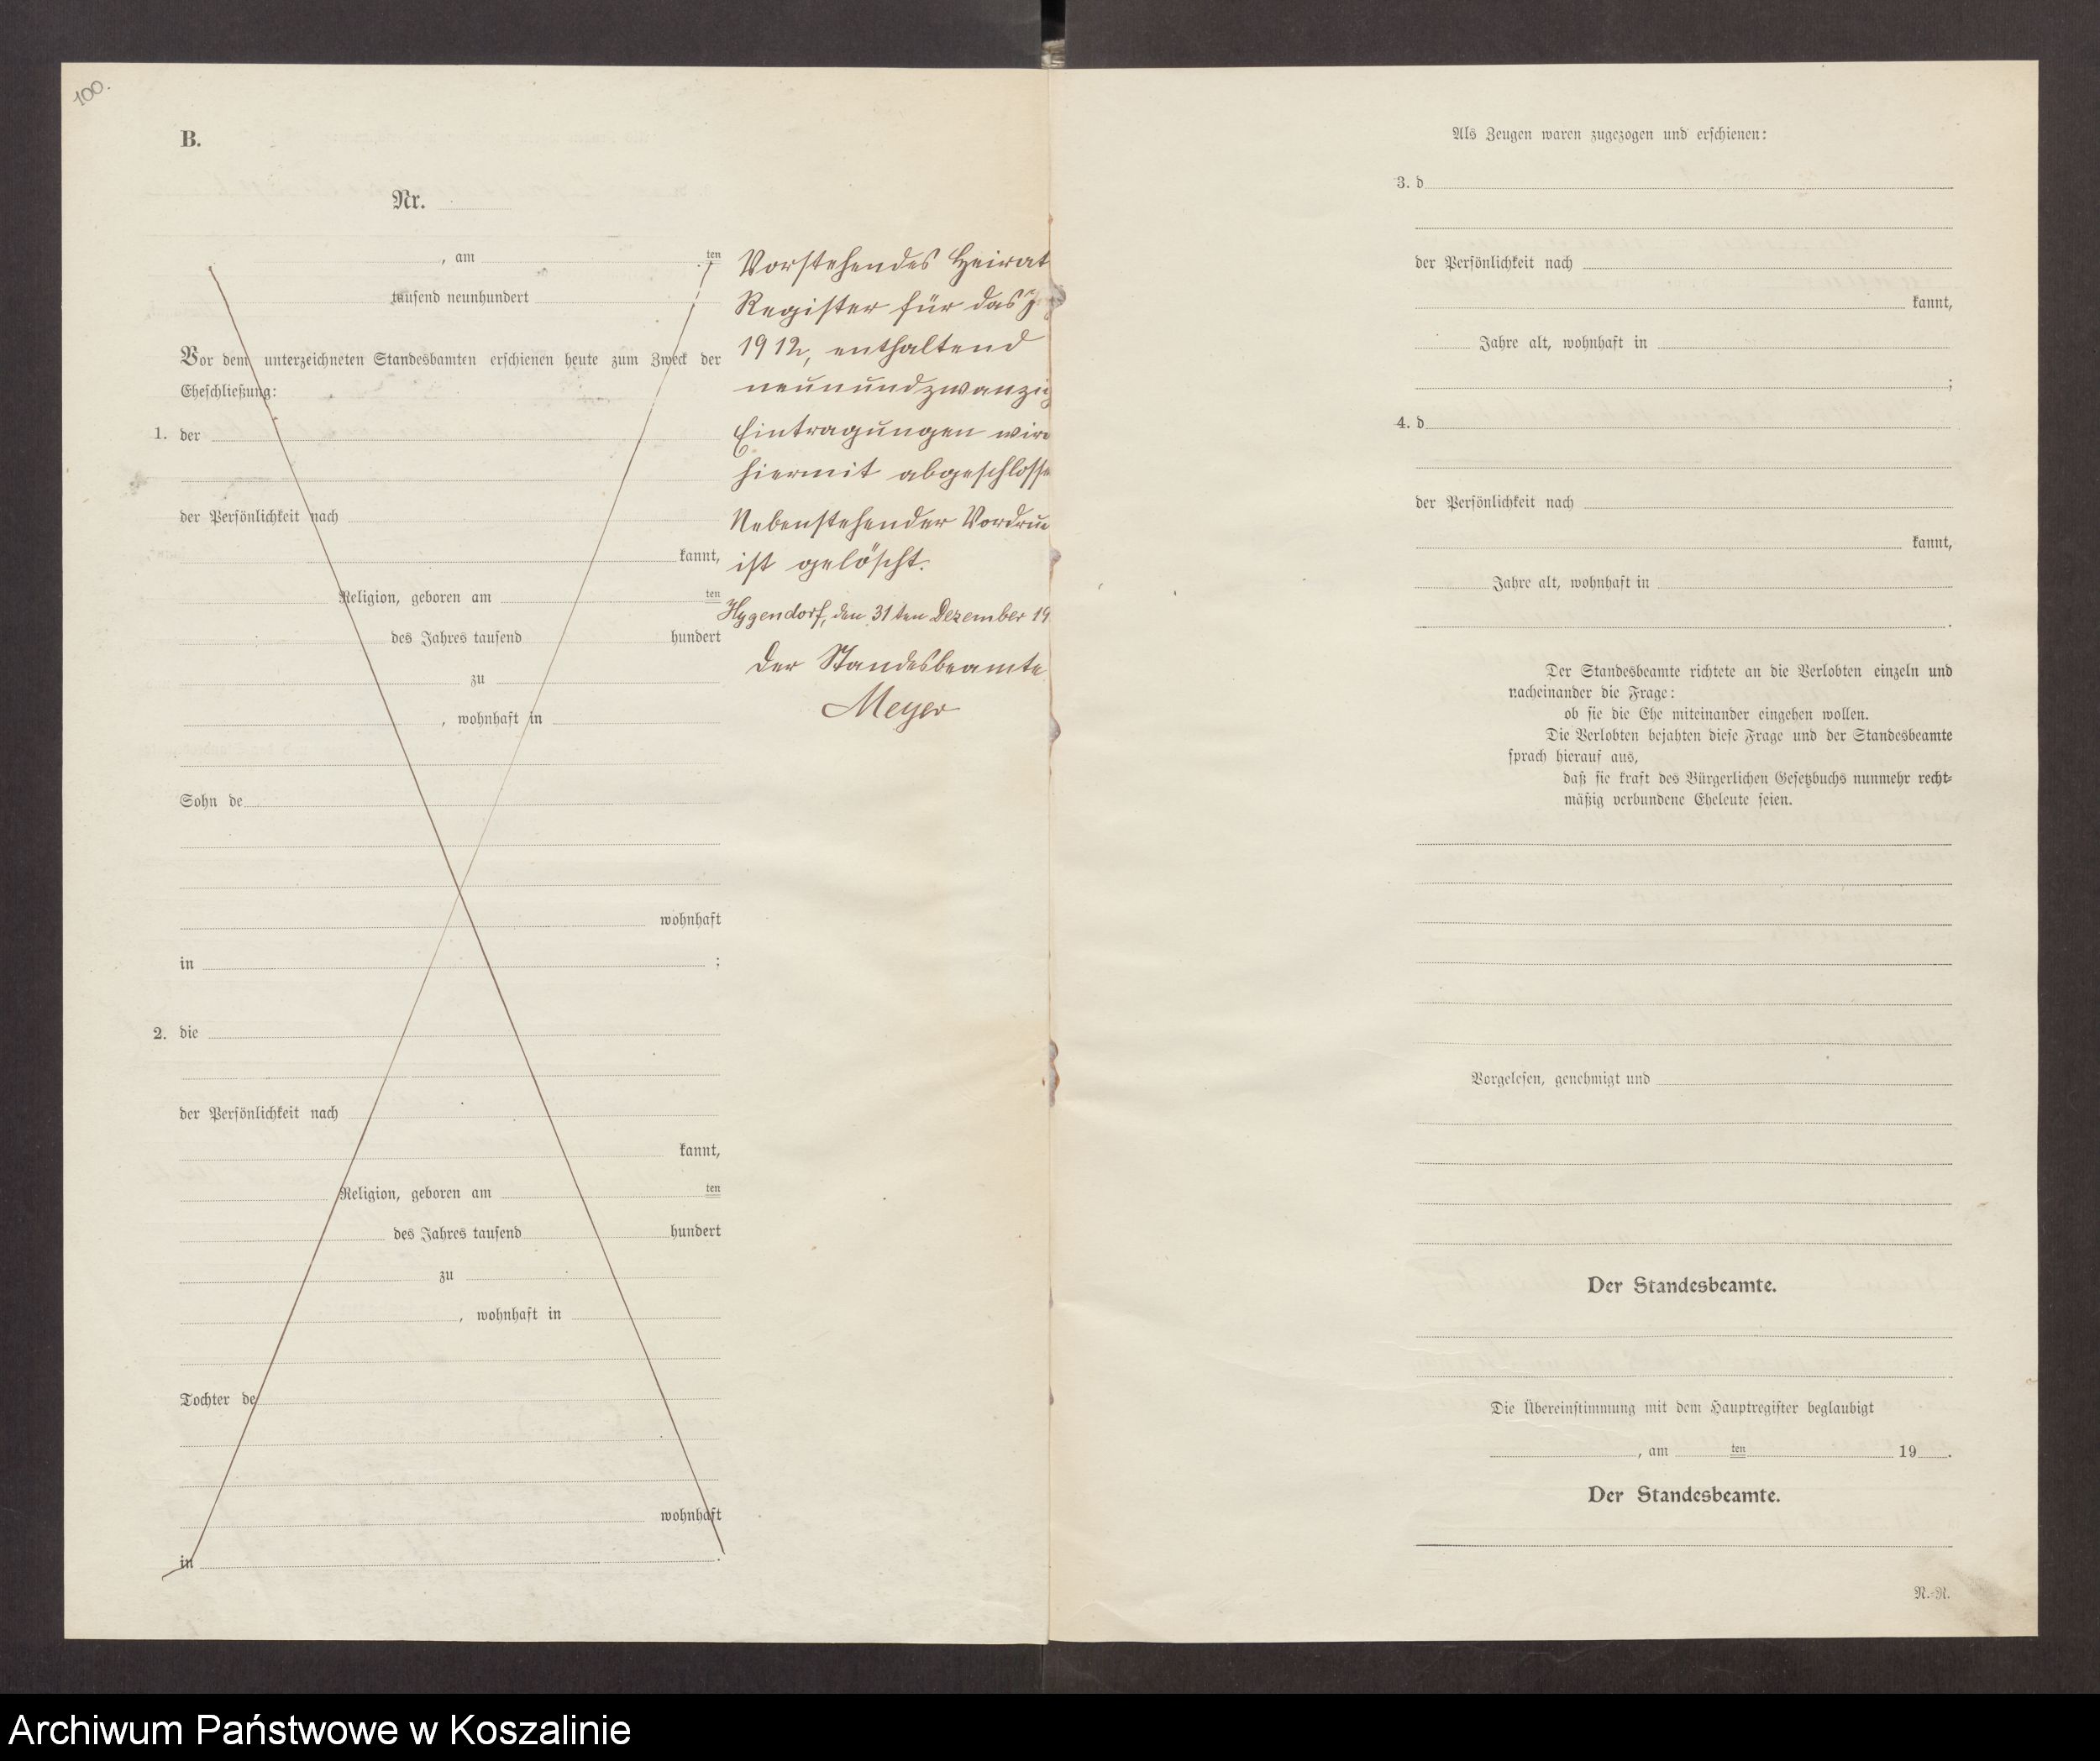 100.
B.
Nr.
, am ten
tausend neunhundert
Vor dem unterzeichneten Standesbamten erschienen heute zum Zweck der
Eheschließung:
1. der
der Persönlichkeit nach
kannt,
Religion, geboren am ten
des Jahres tausend hundert
zu
, wohnhaft in
Sohn de
wohnhaft
in ;
2. die
der Persönlichkeit nach
kannt,
Religion, geboren am ten
des Jahres tausend hundert
zu
, wohnhaft in
Tochter de
wohnhaft
in .
Vorstehendes Heirat
Register für das J
1912, enthaltend
neunundzwanzig
Eintragungen wird
hiermit abgeschlosse
Nebenstehender Vordru
ist gelöscht.
den 31ten Dezember 19
Der Standesbeamte
Meyer
Als Zeugen waren zugezogen und erschienen:
3. d
der Persönlichkeit nach
kannt,
Jahre alt, wohnhaft in
;
4. d
der Persönlichkeit nach
kannt,
Jahre alt, wohnhaft in
.
Der Standesbeamte richtete an die Verlobten einzeln und
nacheinander die Frage:
ob sie die Ehe miteinander eingehen wollen.
Die Verlobten bejahten diese Frage und der Standesbeamte
sprach hierauf aus,
daß sie kraft des Bürgerlichen Gesetzbuchs nunmehr recht-
mäßig verbundene Eheleute seien.
Vorgelesen, genehmigt und
Der Standesbeamte.
Die Übereinstimmung mit dem Hauptregister beglaubigt
, am ten 19 .
Der Standesbeamte.
N.-R.
Archiwum Państwowe w Koszalinie